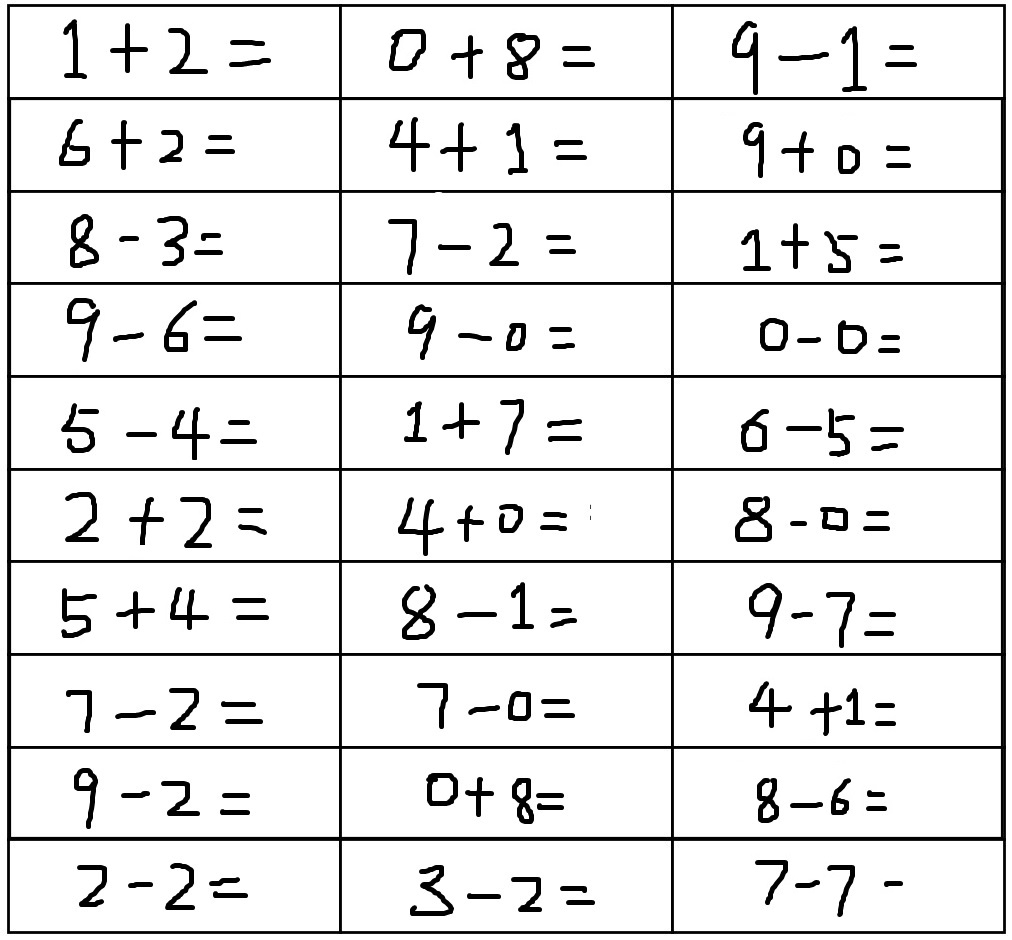 1 + 2 = 0 + 8 = 9 - 1 =
6 + 2 = 4 + 1 = 9 + 0 =
8 - 3 = 7 - 2 = 1 + 5 =
9 - 6 = 9 - 0 = 0 - 0 =
5 - 4 = 1 + 7 = 6 - 5 =
2 + 2 = 4 + 0 = 8 - 0 =
5 + 4 = 8 - 1 = 9 - 7 =
7 - 2 = 7 - 0 = 4 + 1 =
9 - 2 = 0 + 8 = 8 - 6 =
2 - 2 = 3 - 2 = 7 - 7 -